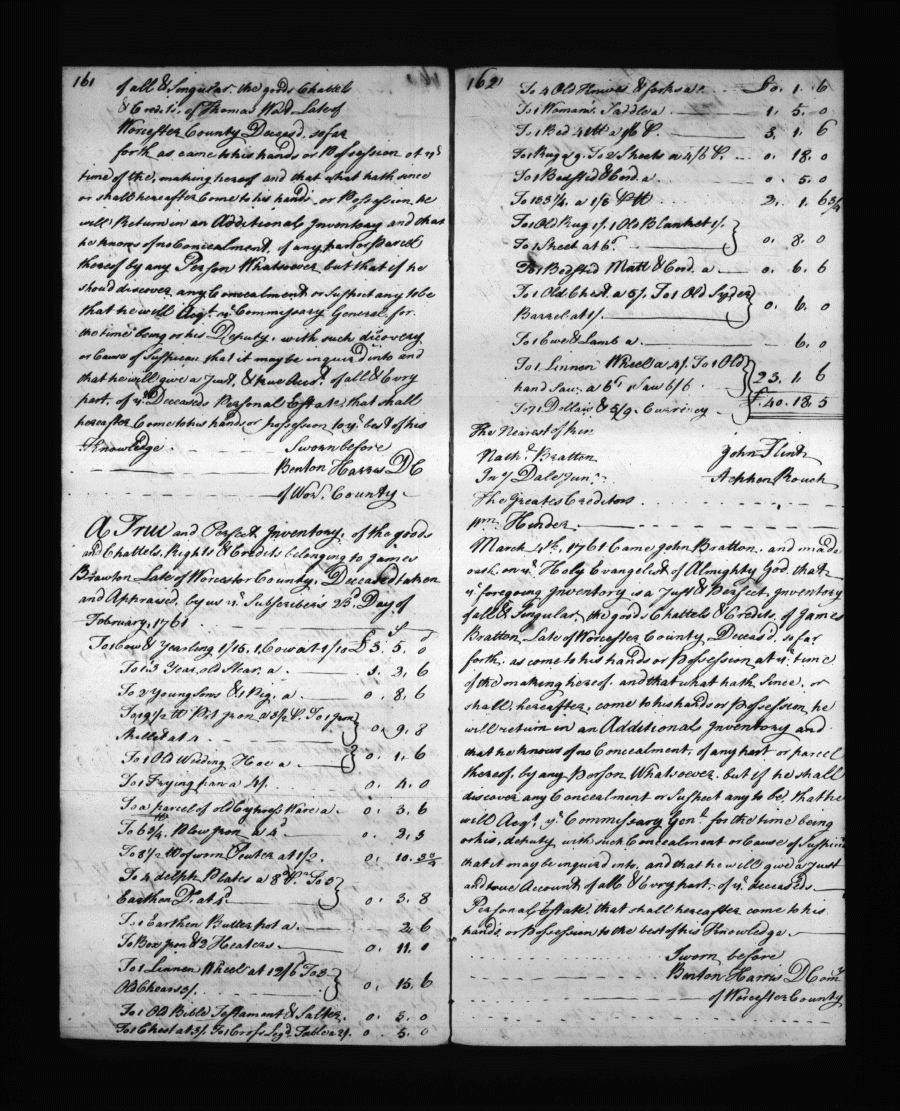 161
of all & Singular the goods Chattels
& Credits of Thomas Late of
Worcester County Deceasd. so far
forth as came to his hands or Possession at ye
time of the making hereof and that what hath since
or shall hereafter Come to his hands or Possession he
will Return in an Additional Inventory and that
he knows of no Concealment of any part or Parcel
thereof by any Person Whatsoever but that if he
should discover any Concealment or Suspect any to be
that he will Acqt. ye Commissary General for
the time being or his Deputy, with such discovery
or Cause of Suspicion that it may be inquird into and
that he will give a Just & true Acct. of all & Evry
part of ye Deceaseds Personal Estate that shall
hereafter Come to his hands or possession to ye best of his
Knowledge Sworn before
Benton Harris DC
of Wor. County
A True and Perfect Inventory of the goods
and Chattels, Rights & Credits belonging to James
Brawton Late of Worcester County, Deceased taken
and Appraised by us ye Subscribers 23d Day of
February, 1761 £ S d
To 1 Cow & Yearling 1/15, 1 Cow at 1/10 £3. 5. 0
To 1 3 Year old Stear a 1. 2. 6
To 2 Young Sows & 1 Pig a 0. 8. 6
To 19 1/2 lb Pot Iron a 3/2 To 1 Iron
Skillet at 0. 9. 8
To 1 Old Weeding Hoe a 0. 1. 6
To 1 Frying pan a 4/ 0. 4. 0
To a parcel of old Cypress Ware a 0. 3. 6
To 6 3/4 Plow Iron a 4d 0. 2. 3
To 8 1/2 lb of worn Pewter at 1/2 0. 10.
To 4 delph Plates a 8d To 3
Earthen Do. at 4d 0. 3. 8
To 1 Earthen Butter pot a 2. 6
To Box Iron & 2 Heaters 0. 11. 0
To 1 Linnen Wheel at 12/6 To 3
Old Chears 3/ 0. 15. 6
To 1 Old Bible Testament & Salter 0. 5. 0
To 1 Chest at 3/. To 1 Cross Legd Table a 2/ 0. 5. 0
162
To 4 Old Knives & forks a £0. 1. 6
To 1 Womans Saddle a 1. 5. 0
To 1 Bed 41 lb a 1/6 3. 1. 6
To 1 Rug a 9. To 2 Sheets a 4/6 0. 18. 0
To 1 Bedsted & Cord a 0. 5. 0
To 123 3/4 a 1/6 lb 2. 1. 6 3/4
To 1 Old Rug 1/. 1 Old Blanket 1/.
To 1 Sheet at 6d. 0. 8. 0
To 1 Bedsted Matt & Cord a 0. 6. 6
To 1 Old Chest a 5/. To 1 Old Syder
Barrel at 1/ 0. 6. 0
To 1 Ewe & Lamb a 6. 0
To 1 Linnen Wheel a 4/. To 1 Old
hand Saw a 6d 23. 1. 6
To 71 Dollars & 5/9 Currency £.40. 18. 5
The Nearest of kin
Nathl. Bratton John Flint
Dale Junr. Stephen Roach
The Greates Creditors
Wm. Hinder
March 4th. 1761 Came John Bratton and made
oath on ye Holy Evangelist of Almighty God that
ye foregoing Inventory is a Just & Perfect Inventory
of all & Singular the goods Chattels & Credits of James
Bratton Late of Worcester County Deceasd. so far
forth as come to his hands or Possession at ye time
of the making hereof and that what hath Since or
shall hereafter come to his hands or Possession he
will return in an Additional Inventory and
that he knows of no Concealment of any part or parcel
thereof by any Person Whatsoever but if he shall
discover any Concealment or Suspect any to be, that he
will Acqt. ye Commissary Genl. for the time being
or his deputy with such Concealment or Cause of Suspicion
that it may be inquird into, and that he will give a Just
and true Account of all & Evry part of ye deceaseds
Personal Estate that shall hereafter come to his
hands or Possession to the best of his Knowledge
Sworn before
Benton Harris D Comy
of Worcester County